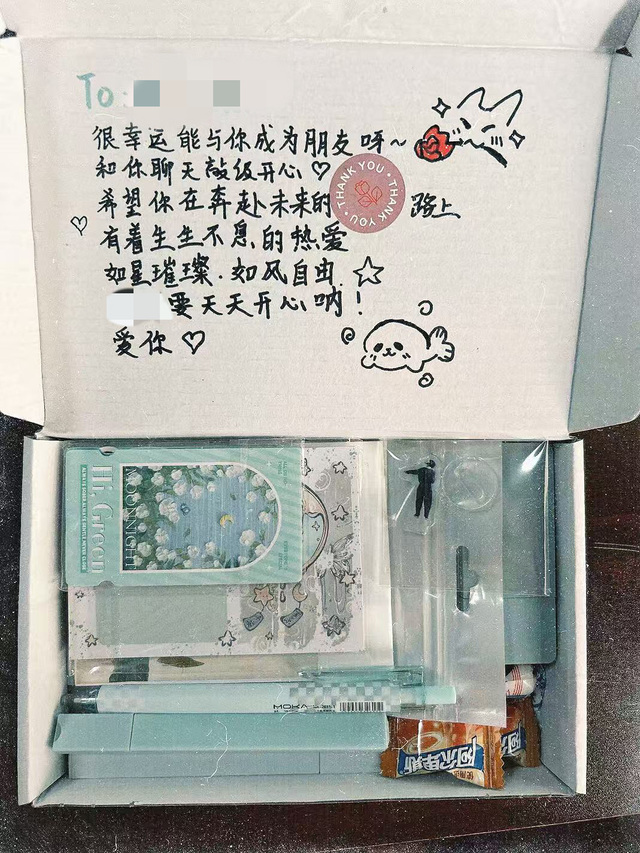 To:
很幸运能与你成为朋友呀~
和你聊天敲级开心♡
希望你在奔赴未来的路上
THANK YOU · THANK YOU ·
有着生生不息的热爱
如星璀璨.如风自由.☆
要天天开心呐!
爱你♡
Hi, Green
MOONNIGHT
MOKA
阿尔卑斯
阿尔卑斯